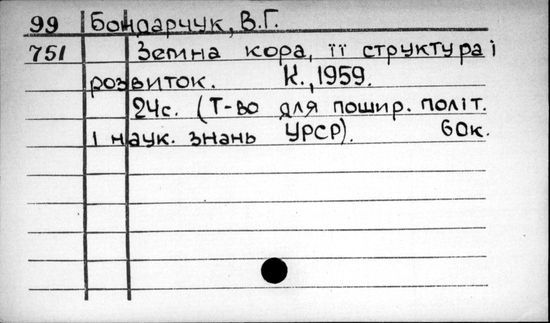 99 Бондарчук, В.Г.
751 Земна кора, її структура і
розвиток. К., 1959.
24с. (Т-во для пошир. політ.
і наук. знань УРСР). 60к.